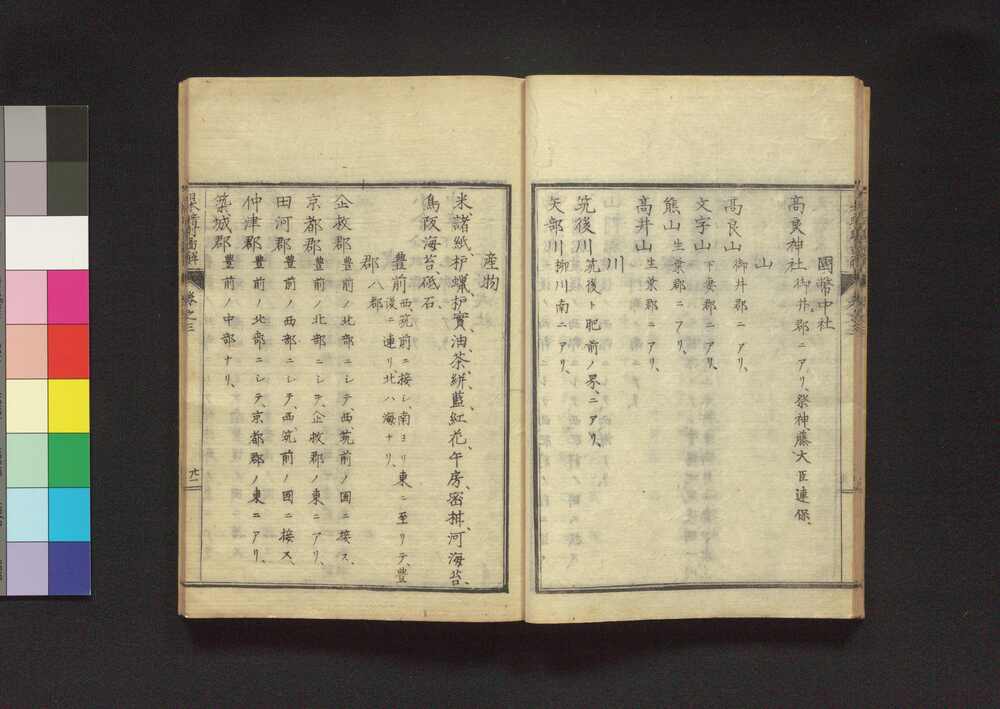 國幣中社
高良神社 御井郡ニアリ、祭神、藤大臣連保、
山
高良山 御井郡ニアリ、
文字山 下妻郡ニアリ、
熊山 生葉郡ニアリ、
高井山 生葉郡ニアリ、
川
筑後川 筑後ト肥前ノ界、ニアリ、
矢部川 柳川南ニアリ、
産物
米、諸紙、栌蝋、栌實油、茶、絣、藍、紅花、午房、密柑、河海苔、
鳥阪海苔、砥石、
豊前 西、筑前ニ接シ、南ヨリ東ニ至リテ、豊
後ニ連リ、北ハ海ナリ、
郡 八郡
企救郡 豊前ノ北部ニシテ、西、筑前ノ國ニ接ス、
京都郡 豊前ノ北部ニシテ、企救郡ノ東ニアリ、
田河郡 豊前ノ西部ニシテ、西、筑前ノ國ニ接ス、
仲津郡 豊前ノ北部ニシテ、京都郡ノ東ニアリ、
築城郡 豊前ノ中部ナリ、
卷之三